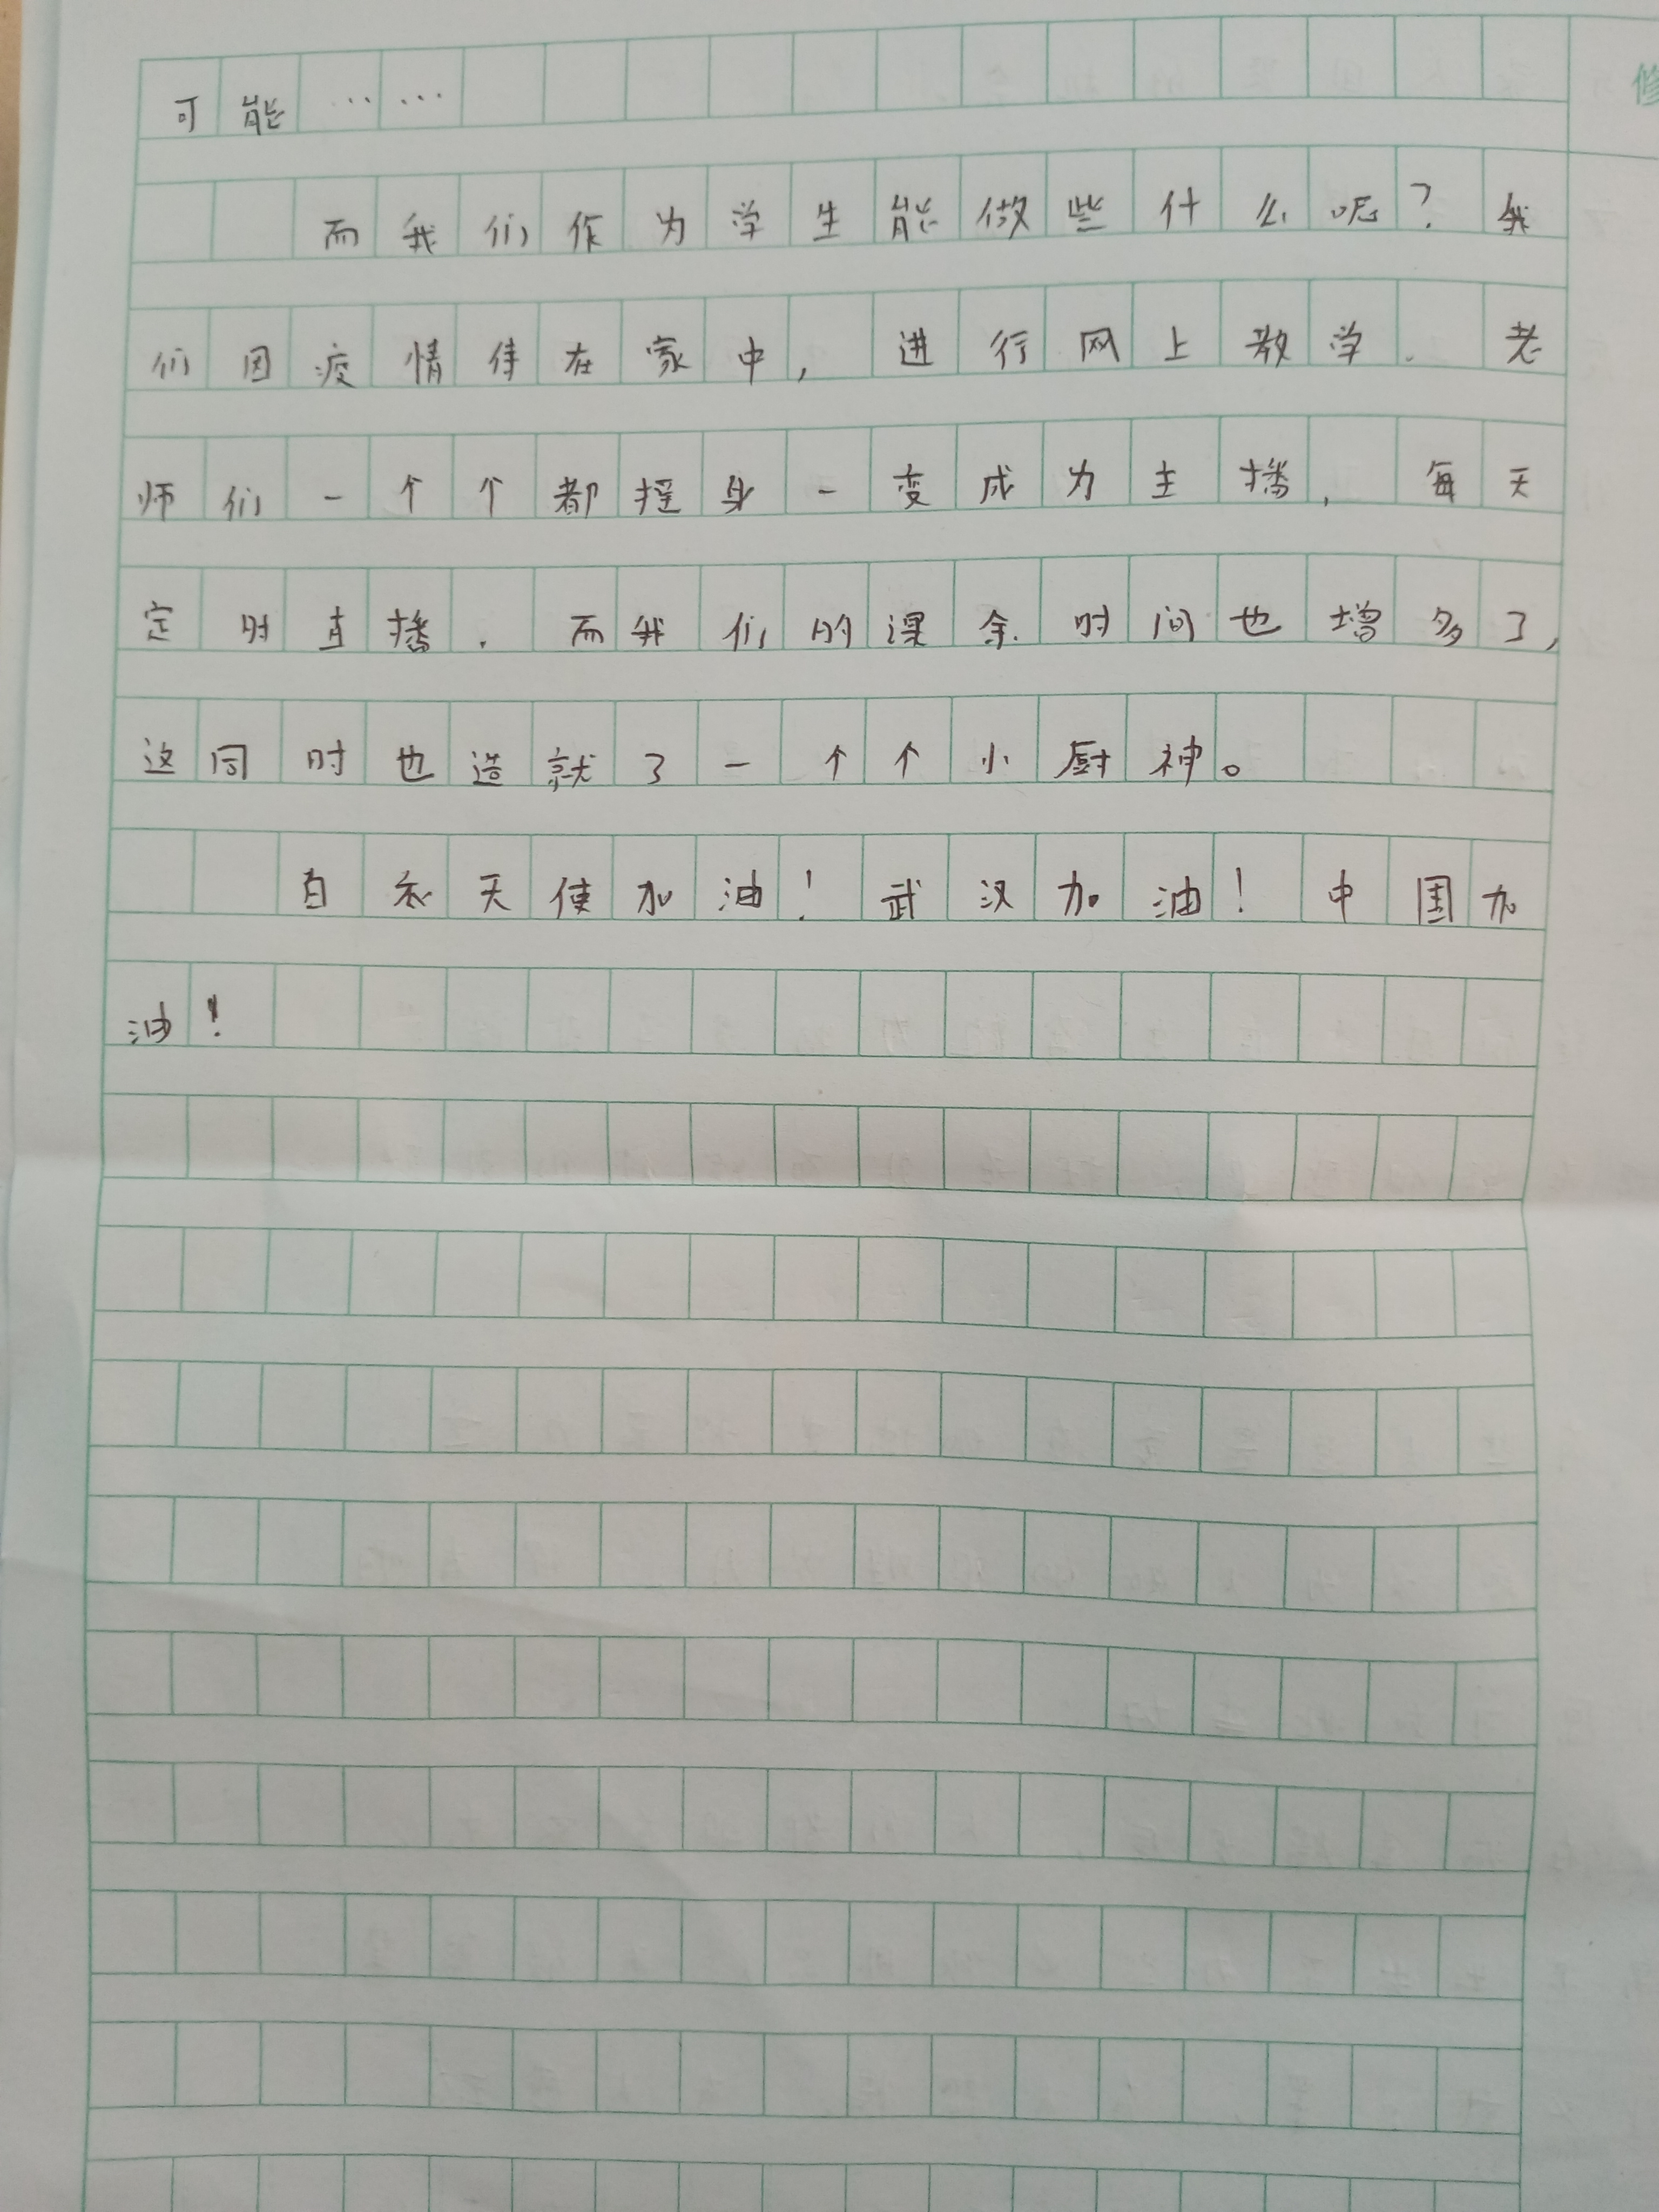 可能……
而我们作为学生能做些什么呢？我
们因疫情待在家中，进行网上教学.老
师们一个个都摇身一变成为主播，每天
定时直播.而我们的课余时间也增多了，
这同时也造就了一个个小厨神。
白衣天使加油！武汉加油！中国加
油！